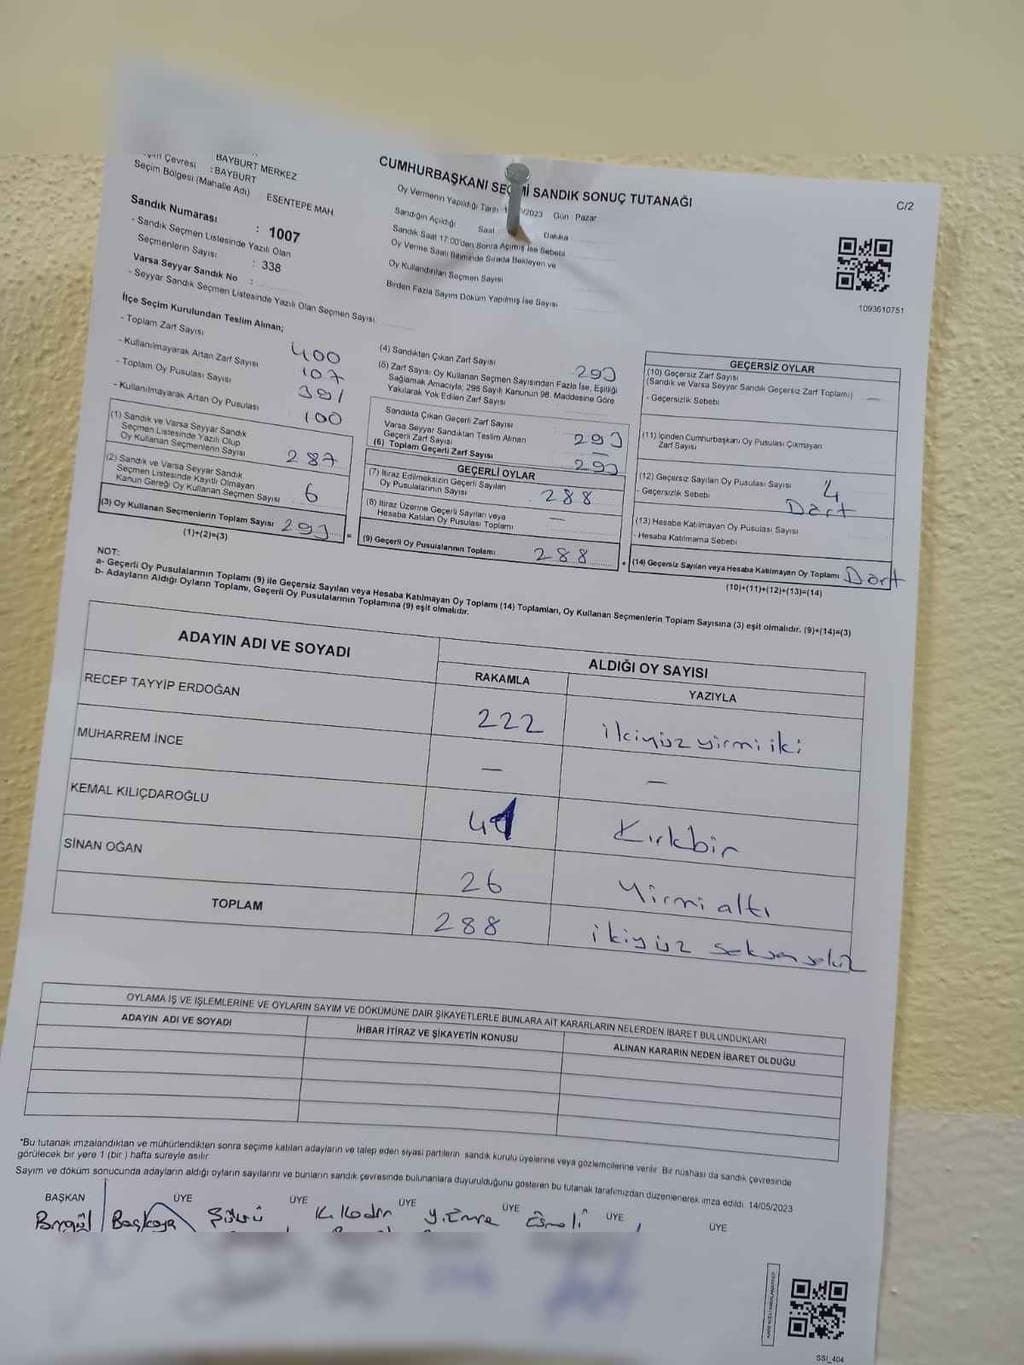 Seçim Çevresi : BAYBURT
BAYBURT MERKEZ
Seçim Bölgesi (Mahalle Adı) ESENTEPE MAH
Sandık Numarası : 1007
- Sandık Seçmen Listesinde Yazılı Olan
Seçmenlerin Sayısı : 338
Varsa Seyyar Sandık No :
- Seyyar Sandık Seçmen Listesinde Yazılı Olan Seçmen Sayısı
CUMHURBAŞKANI SEÇİMİ SANDIK SONUÇ TUTANAĞI
C/2
Oy Vermenin Yapıldığı Tarih /2023 Gün : Pazar
Sandığın Açıldığı Saat Dakika
Sandık Saat 17:00'den Sonra Açılmış İse Sebebi
Oy Verme Saati Bitiminde Sırada Bekleyen ve
Oy Kullandırılan Seçmen Sayısı
Birden Fazla Sayım Döküm Yapılmış İse Sayısı
1093610751
İlçe Seçim Kurulundan Teslim Alınan;
- Toplam Zarf Sayısı 400
- Kullanılmayarak Artan Zarf Sayısı 107
- Toplam Oy Pusulası Sayısı 391
- Kullanılmayarak Artan Oy Pusulası 100
(1) Sandık ve Varsa Seyyar Sandık
Seçmen Listesinde Yazılı Olup
Oy Kullanan Seçmenlerin Sayısı 287
(2) Sandık ve Varsa Seyyar Sandık
Seçmen Listesinde Kayıtlı Olmayan
Kanun Gereği Oy Kullanan Seçmen Sayısı 6
(3) Oy Kullanan Seçmenlerin Toplam Sayısı 293
(1)+(2)=(3)
(4) Sandıktan Çıkan Zarf Sayısı 293
(5) Zarf Sayısı Oy Kullanan Seçmen Sayısından Fazla İse, Eşitliği
Sağlamak Amacıyla; 298 Sayılı Kanunun 98. Maddesine Göre
Yakılarak Yok Edilen Zarf Sayısı
Sandıkta Çıkan Geçerli Zarf Sayısı 293
Varsa Seyyar Sandıktan Teslim Alınan
Geçerli Zarf Sayısı —
(6) Toplam Geçerli Zarf Sayısı 293
GEÇERLİ OYLAR
(7) İtiraz Edilmeksizin Geçerli Sayılan
Oy Pusulalarının Sayısı 288
(8) İtiraz Üzerine Geçerli Sayılan veya
Hesaba Katılan Oy Pusulası Toplamı —
(9) Geçerli Oy Pusulalarının Toplamı 288
GEÇERSİZ OYLAR
(10) Geçersiz Zarf Sayısı
(Sandık ve Varsa Seyyar Sandık Geçersiz Zarf Toplamı) —
- Geçersizlik Sebebi
(11) İçinden Cumhurbaşkanı Oy Pusulası Çıkmayan
Zarf Sayısı
(12) Geçersiz Sayılan Oy Pusulası Sayısı 4
- Geçersizlik Sebebi Dört
(13) Hesaba Katılmayan Oy Pusulası Sayısı
- Hesaba Katılmama Sebebi
(14) Geçersiz Sayılan veya Hesaba Katılmayan Oy Toplamı Dört
(10)+(11)+(12)+(13)=(14)
NOT:
a- Geçerli Oy Pusulalarının Toplamı (9) ile Geçersiz Sayılan veya Hesaba Katılmayan Oy Toplamı (14) Toplamları, Oy Kullanan Seçmenlerin Toplam Sayısına (3) eşit olmalıdır. (9)+(14)=(3)
b- Adayların Aldığı Oyların Toplamı, Geçerli Oy Pusulalarının Toplamına (9) eşit olmalıdır.
ADAYIN ADI VE SOYADI ALDIĞI OY SAYISI
RAKAMLA YAZIYLA
RECEP TAYYİP ERDOĞAN 222 ikiyüz yirmi iki
MUHARREM İNCE — —
KEMAL KILIÇDAROĞLU 41 Kırkbir
SİNAN OĞAN 26 Yirmi altı
TOPLAM 288 ikiyüz seksen sekiz
OYLAMA İŞ VE İŞLEMLERİNE VE OYLARIN SAYIM VE DÖKÜMÜNE DAİR ŞİKAYETLERLE BUNLARA AİT KARARLARIN NELERDEN İBARET BULUNDUKLARI
ADAYIN ADI VE SOYADI İHBAR İTİRAZ VE ŞİKAYETİN KONUSU ALINAN KARARIN NEDEN İBARET OLDUĞU
*Bu tutanak imzalandıktan ve mühürlendikten sonra seçime katılan adayların ve talep eden siyasi partilerin sandık kurulu üyelerine veya gözlemcilerine verilir. Bir nüshası da sandık çevresinde
görülecek bir yere 1 (bir) hafta süreyle asılır.
Sayım ve döküm sonucunda adayların aldığı oyların sayılarını ve bunların sandık çevresinde bulunanlara duyurulduğunu gösteren bu tutanak tarafımızdan düzenlenerek imza edildi. 14/05/2023
BAŞKAN ÜYE ÜYE ÜYE ÜYE ÜYE ÜYE
SSİ_404